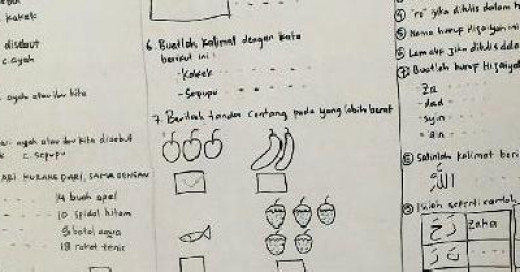 kakek
disebut
c. ayah
ayah atau ibu kita
ayah atau ibu kita disebut
c. sepupu
KURANG DARI, SAMA DENGAN
14 buah apel
10 spidol hitam
botol aqua
18 raket tenis
6. Buatlah kalimat dengan kata
berikut ini :
- Kakek
- Sepupu
7. Berilah tanda centang pada yang lebih berat
④ "ro" jika ditulis dalam h
⑤ Nama huruf Hijaiyah ini
⑥ Lam alif jika ditulis dala
⑦ Buatlah huruf Hijaiyah
- Za
- dad
- syin
- ain
⑧ Salinlah kalimat beri
اللّٰهُ
⑨ Isilah seperti contoh
زَحَ zaha